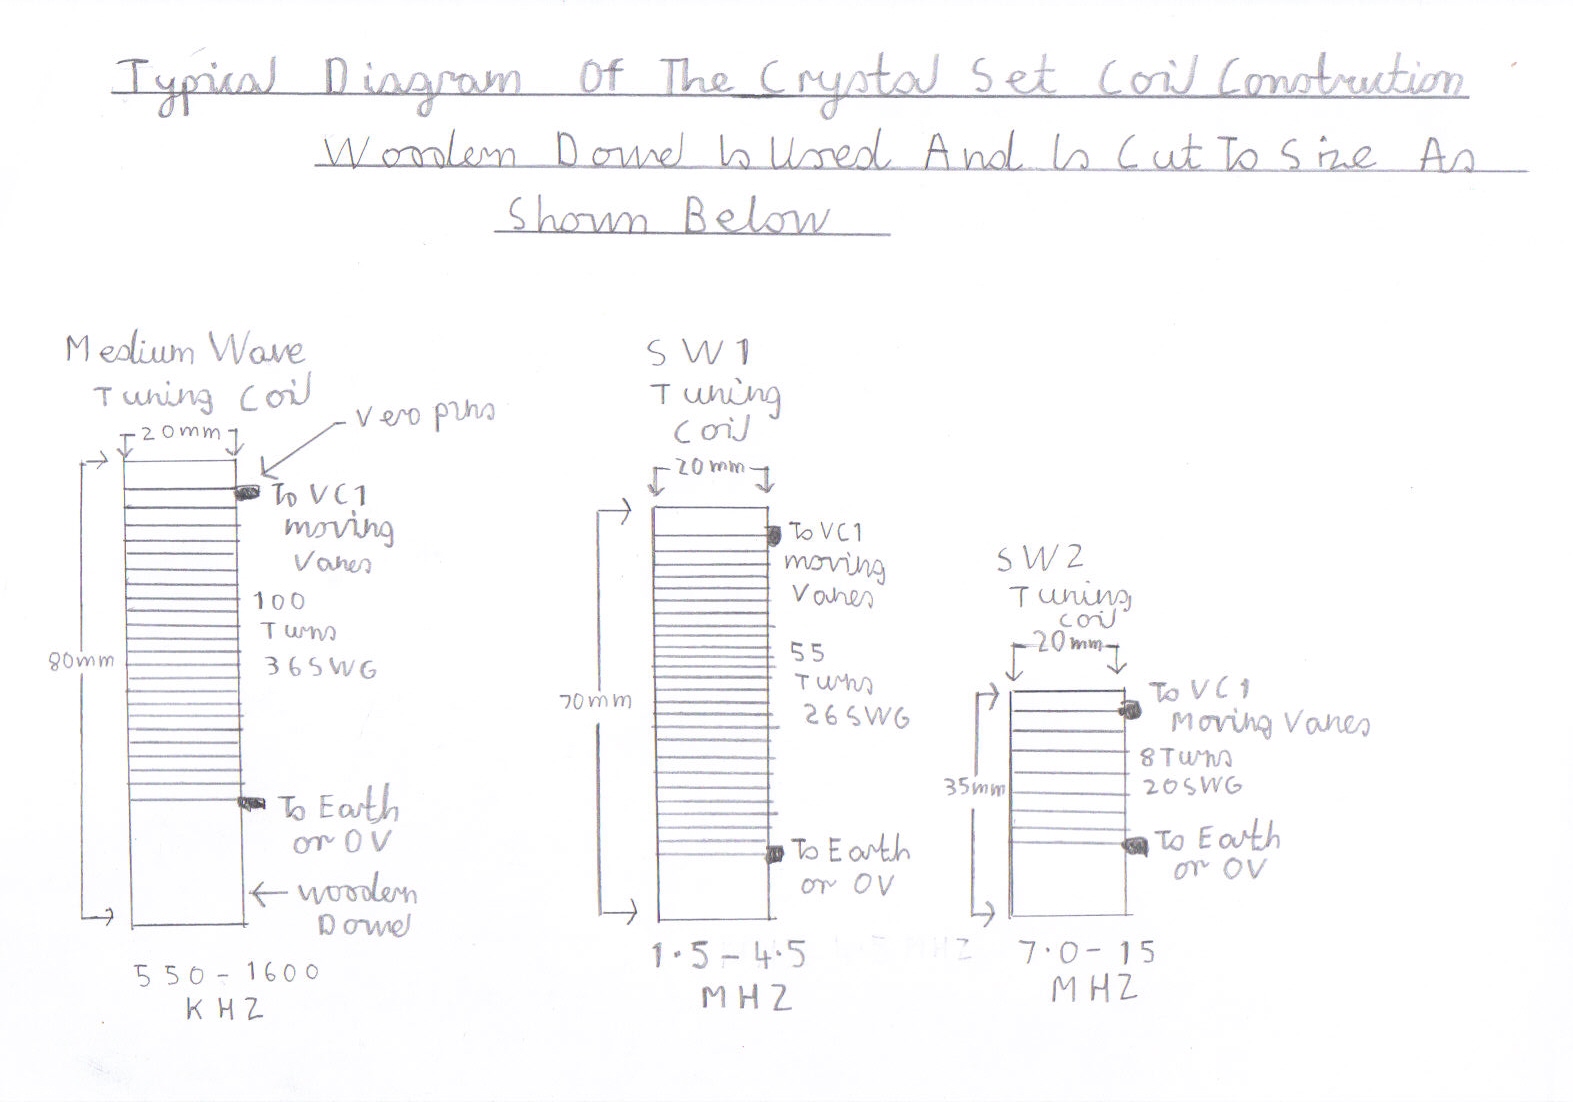 Typical Diagram Of The Crystal Set Coil Constrution
Woodern Dowel Is Used And Is Cut To Size As
Shown Below
Medium Wave
Tuning Coil
20mm
Vero pins
To VC1
moving
Vanes
100
Turns
36SWG
80mm
To Earth
or 0V
Woodern
Dowel
550-1600
KHZ
SW1
Tuning
Coil
20mm
To VC1
moving
Vanes
55
Turns
26SWG
70mm
To Earth
or 0V
1.5-4.5
MHZ
SW2
Tuning
coil
20mm
To VC1
Moving Vanes
8 Turns
20SWG
35mm
To Earth
or 0V
7.0-15
MHZ